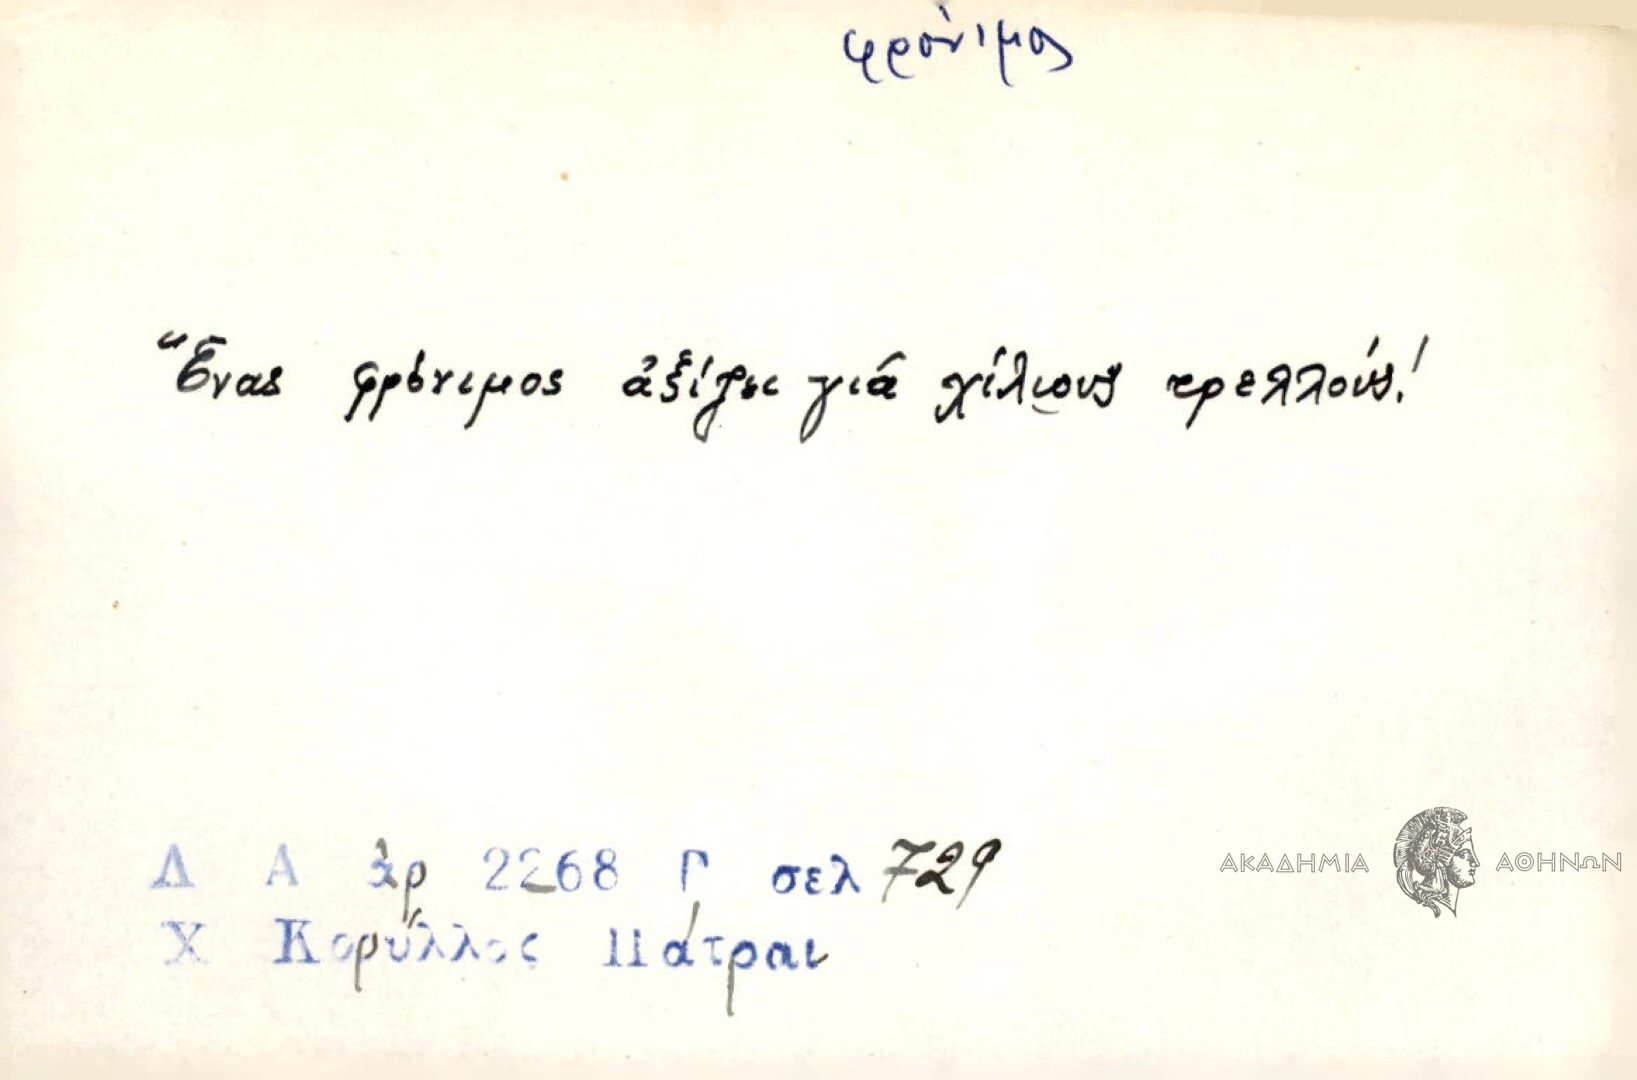 φρόνιμος
Ἕνας φρόνιμος ἀξίζει γιά χίλιους τρελλούς!
Δ Α ἀρ 2268 Γ σελ 729
Χ Κορύλλος Πάτραι
ΑΚΑΔΗΜΙΑ ΑΘΗΝΩΝ